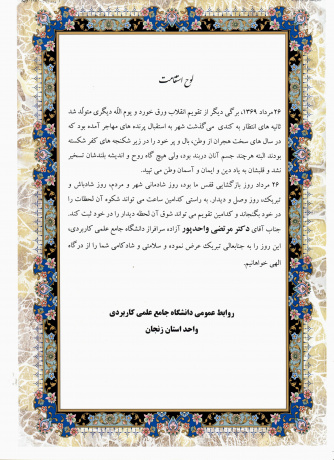 لوح استقامت
۲۶ مرداد ۱۳۶۹، برگی دیگر از تقویم انقلاب ورق خورد و یوم الله دیگری متولد شد
ثانیه های انتظار به کندی می‌گذشت شهر به استقبال پرنده های مهاجر آمده بود که
در سال های سخت هجران از وطن، بال و پر خود را در زیر شکنجه های کفر شکسته
بودند البته هرچند جسم آنان دربند بود، ولی هیچ گاه روح و اندیشه بلندشان تسخیر
نشد و قلبشان به یاد دین و ایمان و آسمان وطن می تپید.
۲۶ مرداد روز بازگشایی قفس ها بود، روز شادمانی شهر و مردم، روز شادباش و
تبریک، روز وصل و دیدار. به راستی کدامین ساعت می تواند شکوه آن لحظات را
در خود بگنجاند و کدامین تقویم می تواند شوق آن لحظه دیدار را در خود ثبت کند.
جناب آقای دکتر مرتضی واحدپور آزاده سرافراز دانشگاه جامع علمی کاربردی،
این روز را به جنابعالی تبریک عرض نموده و سلامتی و شادکامی شما را از درگاه
الهی خواهانیم.
روابط عمومی دانشگاه جامع علمی کاربردی
واحد استان زنجان